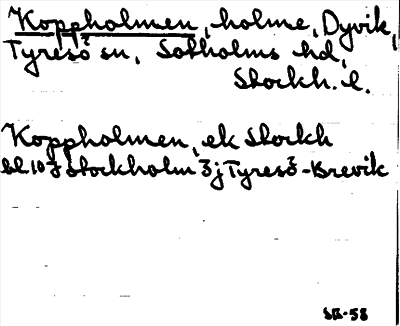 Koppholmen, holme, Dyvik,
Tyresö sn, Sotholms hd,
Stockh. l.
Koppholmen, ek Stockh
bl 10 J Stockholm 3 j Tyresö-Brevik
SB-58